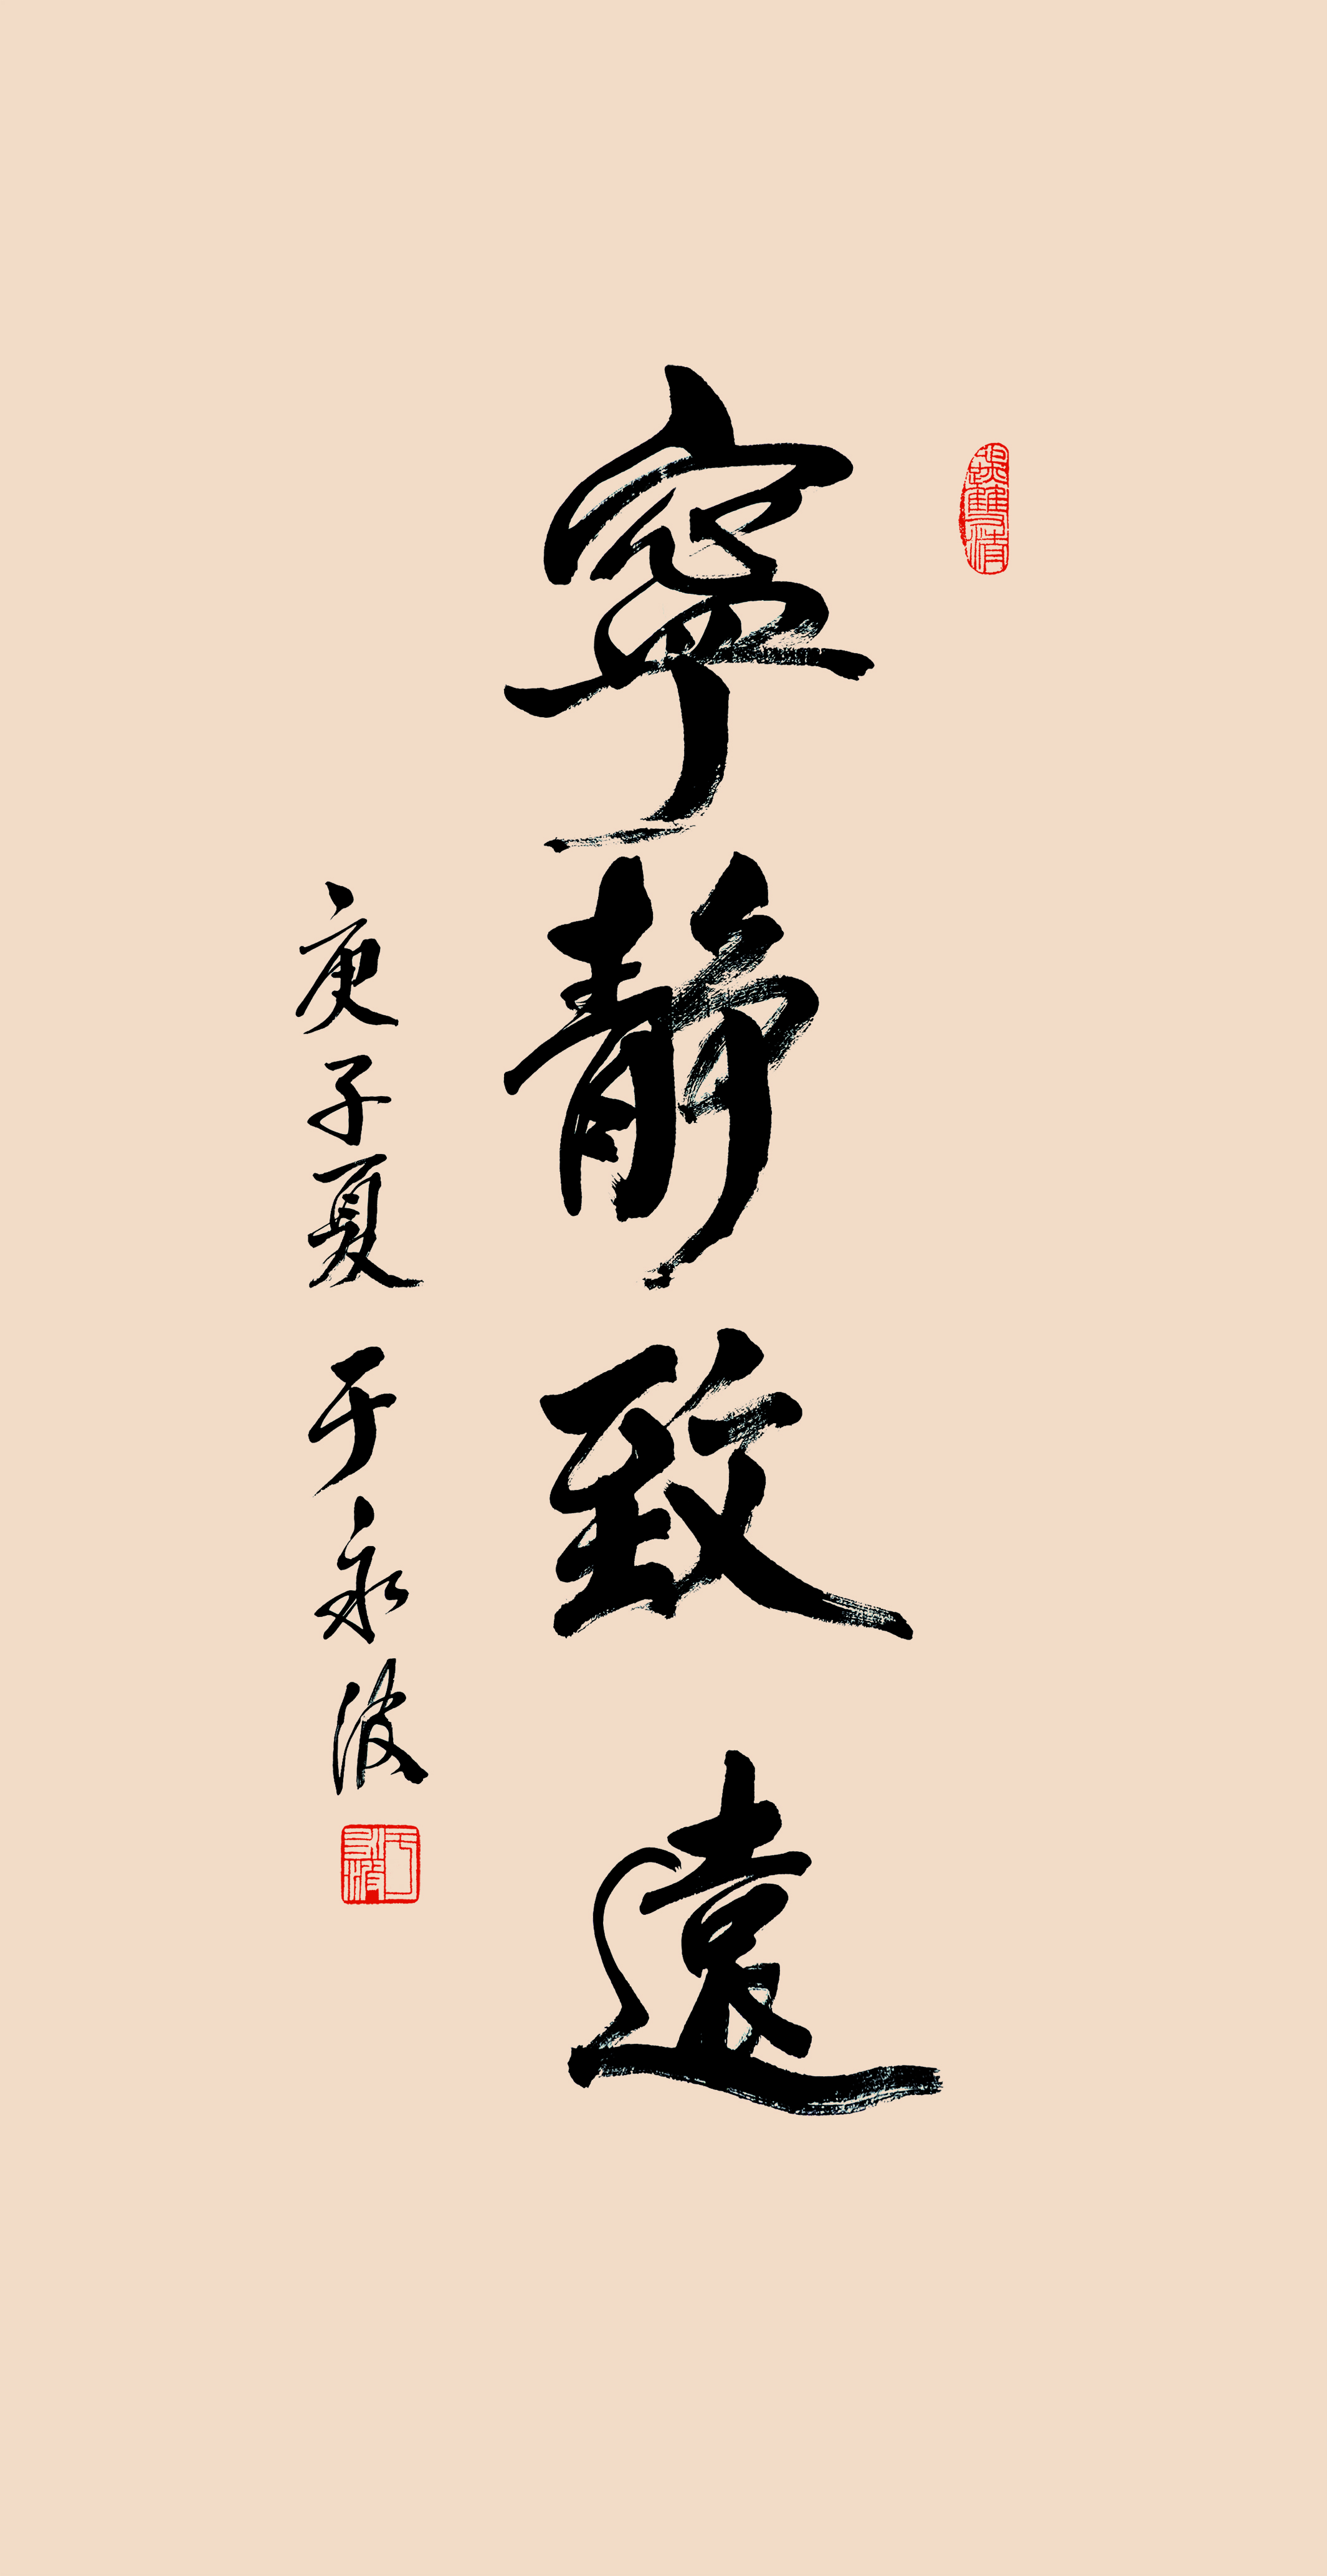 寧靜致遠
庚子夏 于永波